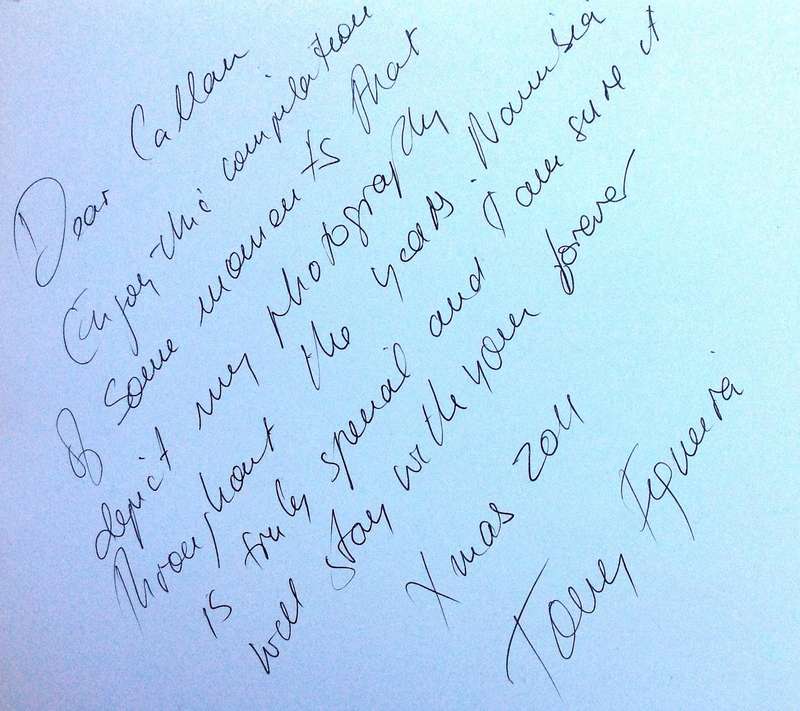 Dear Callan
Enjoy this compilation
of some moments that
depict my photography
throughout the years. Namibia
is truly special and I am sure it
will stay with your forever
Xmas 2011
Tony Figueira